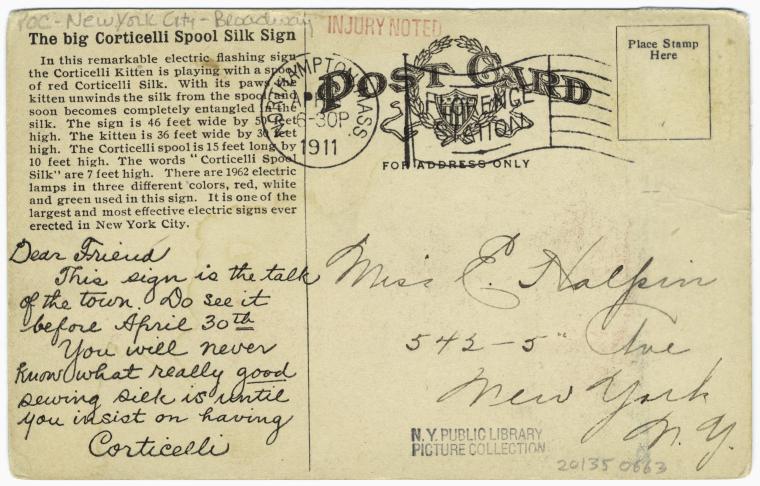 POC - New York City - Broadway
INJURY NOTED
The big Corticelli Spool Silk Sign
In this remarkable electric flashing sign
the Corticelli Kitten is playing with a spool
of red Corticelli Silk. With its paws the
kitten unwinds the silk from the spool and
soon becomes completely entangled in the
silk. The sign is 46 feet wide by 50 feet
high. The kitten is 36 feet wide by 30 feet
high. The Corticelli spool is 15 feet long by
10 feet high. The words "Corticelli Spool
Silk" are 7 feet high. There are 1962 electric
lamps in three different colors, red, white
and green used in this sign. It is one of the
largest and most effective electric signs ever
erected in New York City.
Dear Friend
This sign is the talk
of the town. Do see it
before April 30th
You will never
know what really good
sewing silk is until
you insist on having
Corticelli
NORTHAMPTON, MASS.
6-30P
1911
FLORENCE
STATION
POST CARD
FOR ADDRESS ONLY
Place Stamp
Here
Miss E. Halpin
542-5" Ave
New York
N.Y.
N.Y. PUBLIC LIBRARY
PICTURE COLLECTION
20135 0663